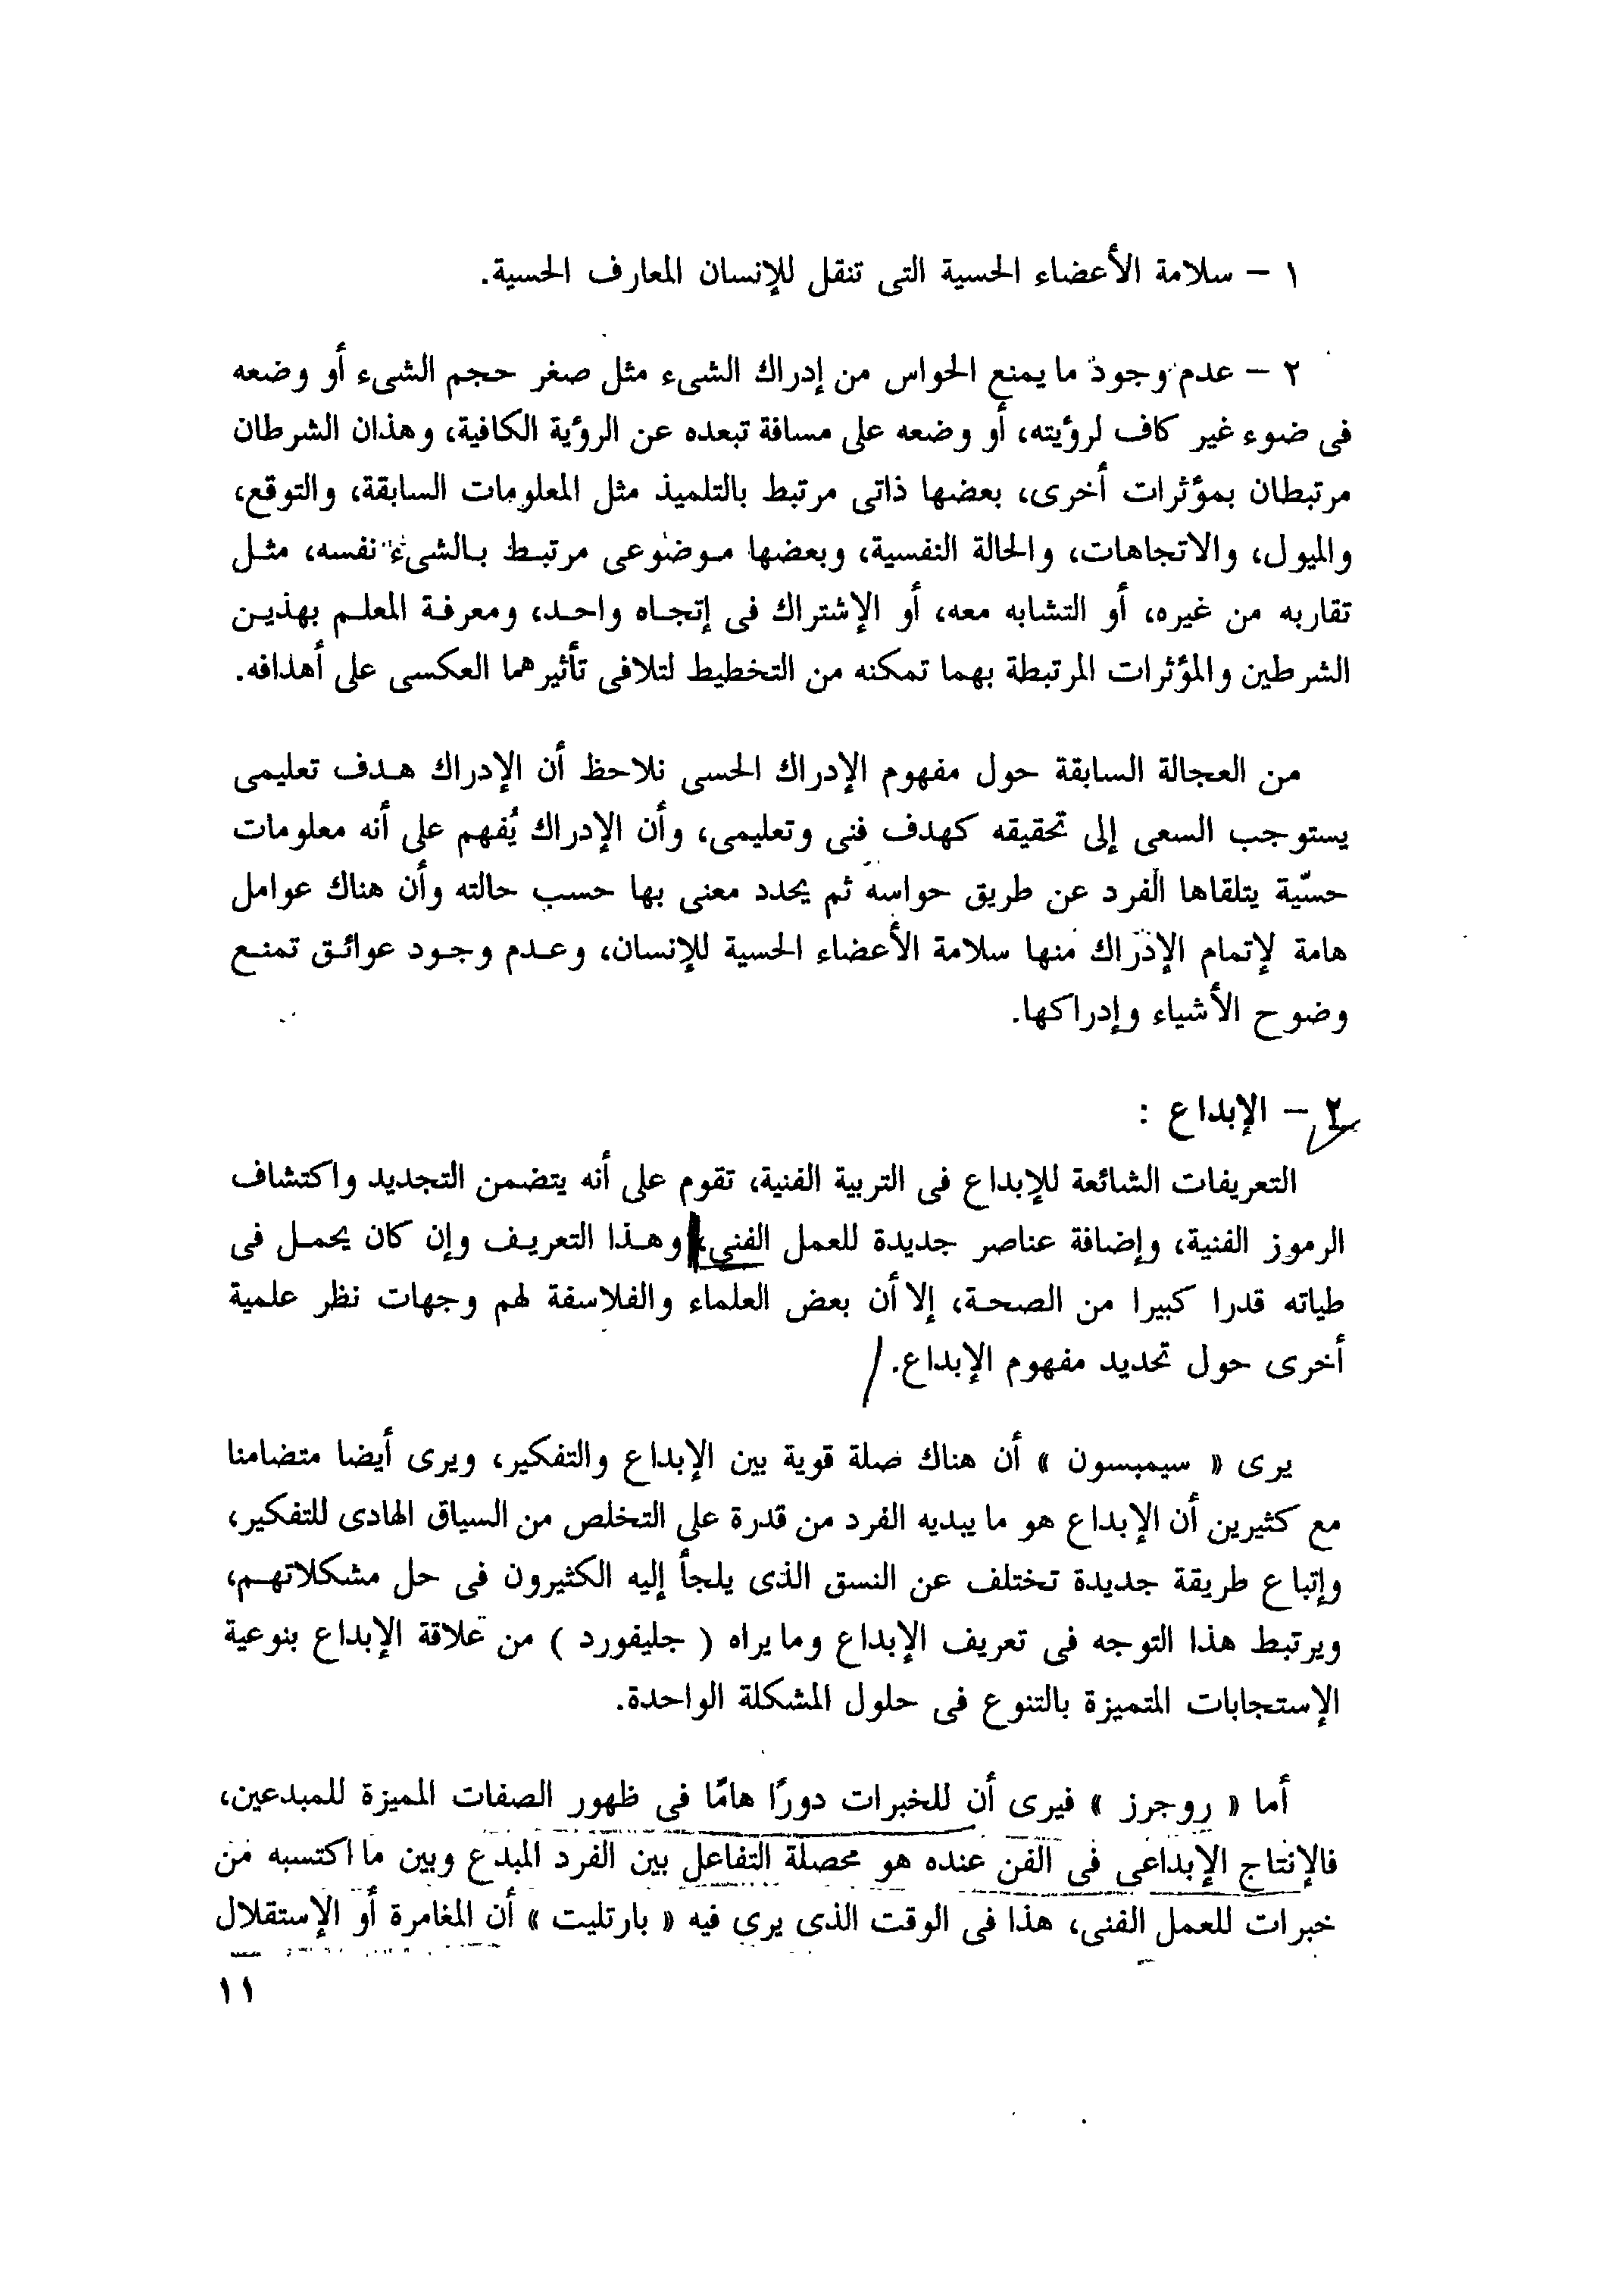 ١ – سلامة الأعضاء الحسية التى تنقل للإنسان المعارف الحسية.
٢ – عدم وجود ما يمنع الحواس من إدراك الشىء مثل صغر حجم الشىء أو وضعه
فى ضوء غير كاف لرؤيته، أو وضعه على مسافة تبعده عن الرؤية الكافية، وهذان الشرطان
مرتبطان بمؤثرات أخرى، بعضها ذاتى مرتبط بالتلميذ مثل المعلومات السابقة، والتوقع،
والميول، والاتجاهات، والحالة النفسية، وبعضها موضوعى مرتبط بالشىء نفسه، مثل
تقاربه من غيره، أو التشابه معه، أو الإشتراك فى إتجاه واحد، ومعرفة المعلم بهذين
الشرطين والمؤثرات المرتبطة بهما تمكنه من التخطيط لتلافى تأثيرهما العكسى على أهدافه.
من العجالة السابقة حول مفهوم الإدراك الحسى نلاحظ أن الإدراك هدف تعليمى
يستوجب السعى إلى تحقيقه كهدف فنى وتعليمى، وأن الإدراك يُفهم على أنه معلومات
حسّية يتلقاها الفرد عن طريق حواسه ثم يحدد معنى بها حسب حالته وأن هناك عوامل
هامة لإتمام الإدراك منها سلامة الأعضاء الحسية للإنسان، وعدم وجود عوائق تمنع
وضوح الأشياء وإدراكها.
٢ – الإبداع :
التعريفات الشائعة للإبداع فى التربية الفنية، تقوم على أنه يتضمن التجديد واكتشاف
الرموز الفنية، وإضافة عناصر جديدة للعمل الفنى، وهذا التعريف وإن كان يحمل فى
طياته قدرا كبيرا من الصحة، إلا أن بعض العلماء والفلاسفة لهم وجهات نظر علمية
أخرى حول تحديد مفهوم الإبداع.
يرى « سيمبسون » أن هناك صلة قوية بين الإبداع والتفكير، ويرى أيضا متضامنا
مع كثيرين أن الإبداع هو ما يبديه الفرد من قدرة على التخلص من السياق الهادى للتفكير،
وإتباع طريقة جديدة تختلف عن النسق الذى يلجأ إليه الكثيرون فى حل مشكلاتهم،
ويرتبط هذا التوجه فى تعريف الإبداع وما يراه ( جليفورد ) من علاقة الإبداع بنوعية
الإستجابات المتميزة بالتنوع فى حلول المشكلة الواحدة.
أما « روجرز » فيرى أن للخبرات دورًا هامًا فى ظهور الصفات المميزة للمبدعين،
فالإنتاج الإبداعى فى الفن عنده هو محصلة التفاعل بين الفرد المبدع وبين ما اكتسبه من
خبرات للعمل الفنى، هذا فى الوقت الذى يرى فيه « بارتليت » أن المغامرة أو الإستقلال
١١